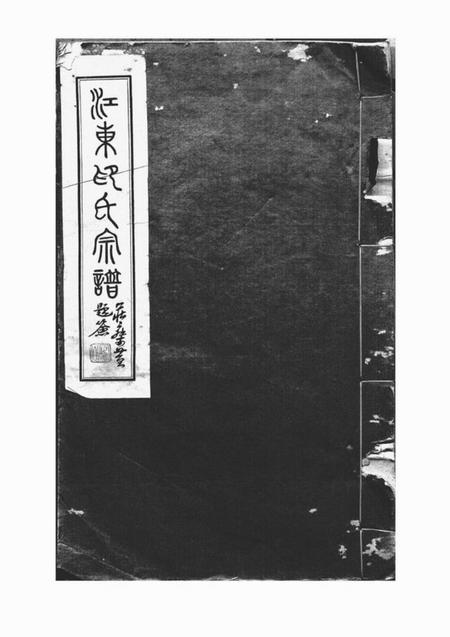 江東印氏宗譜
題簽